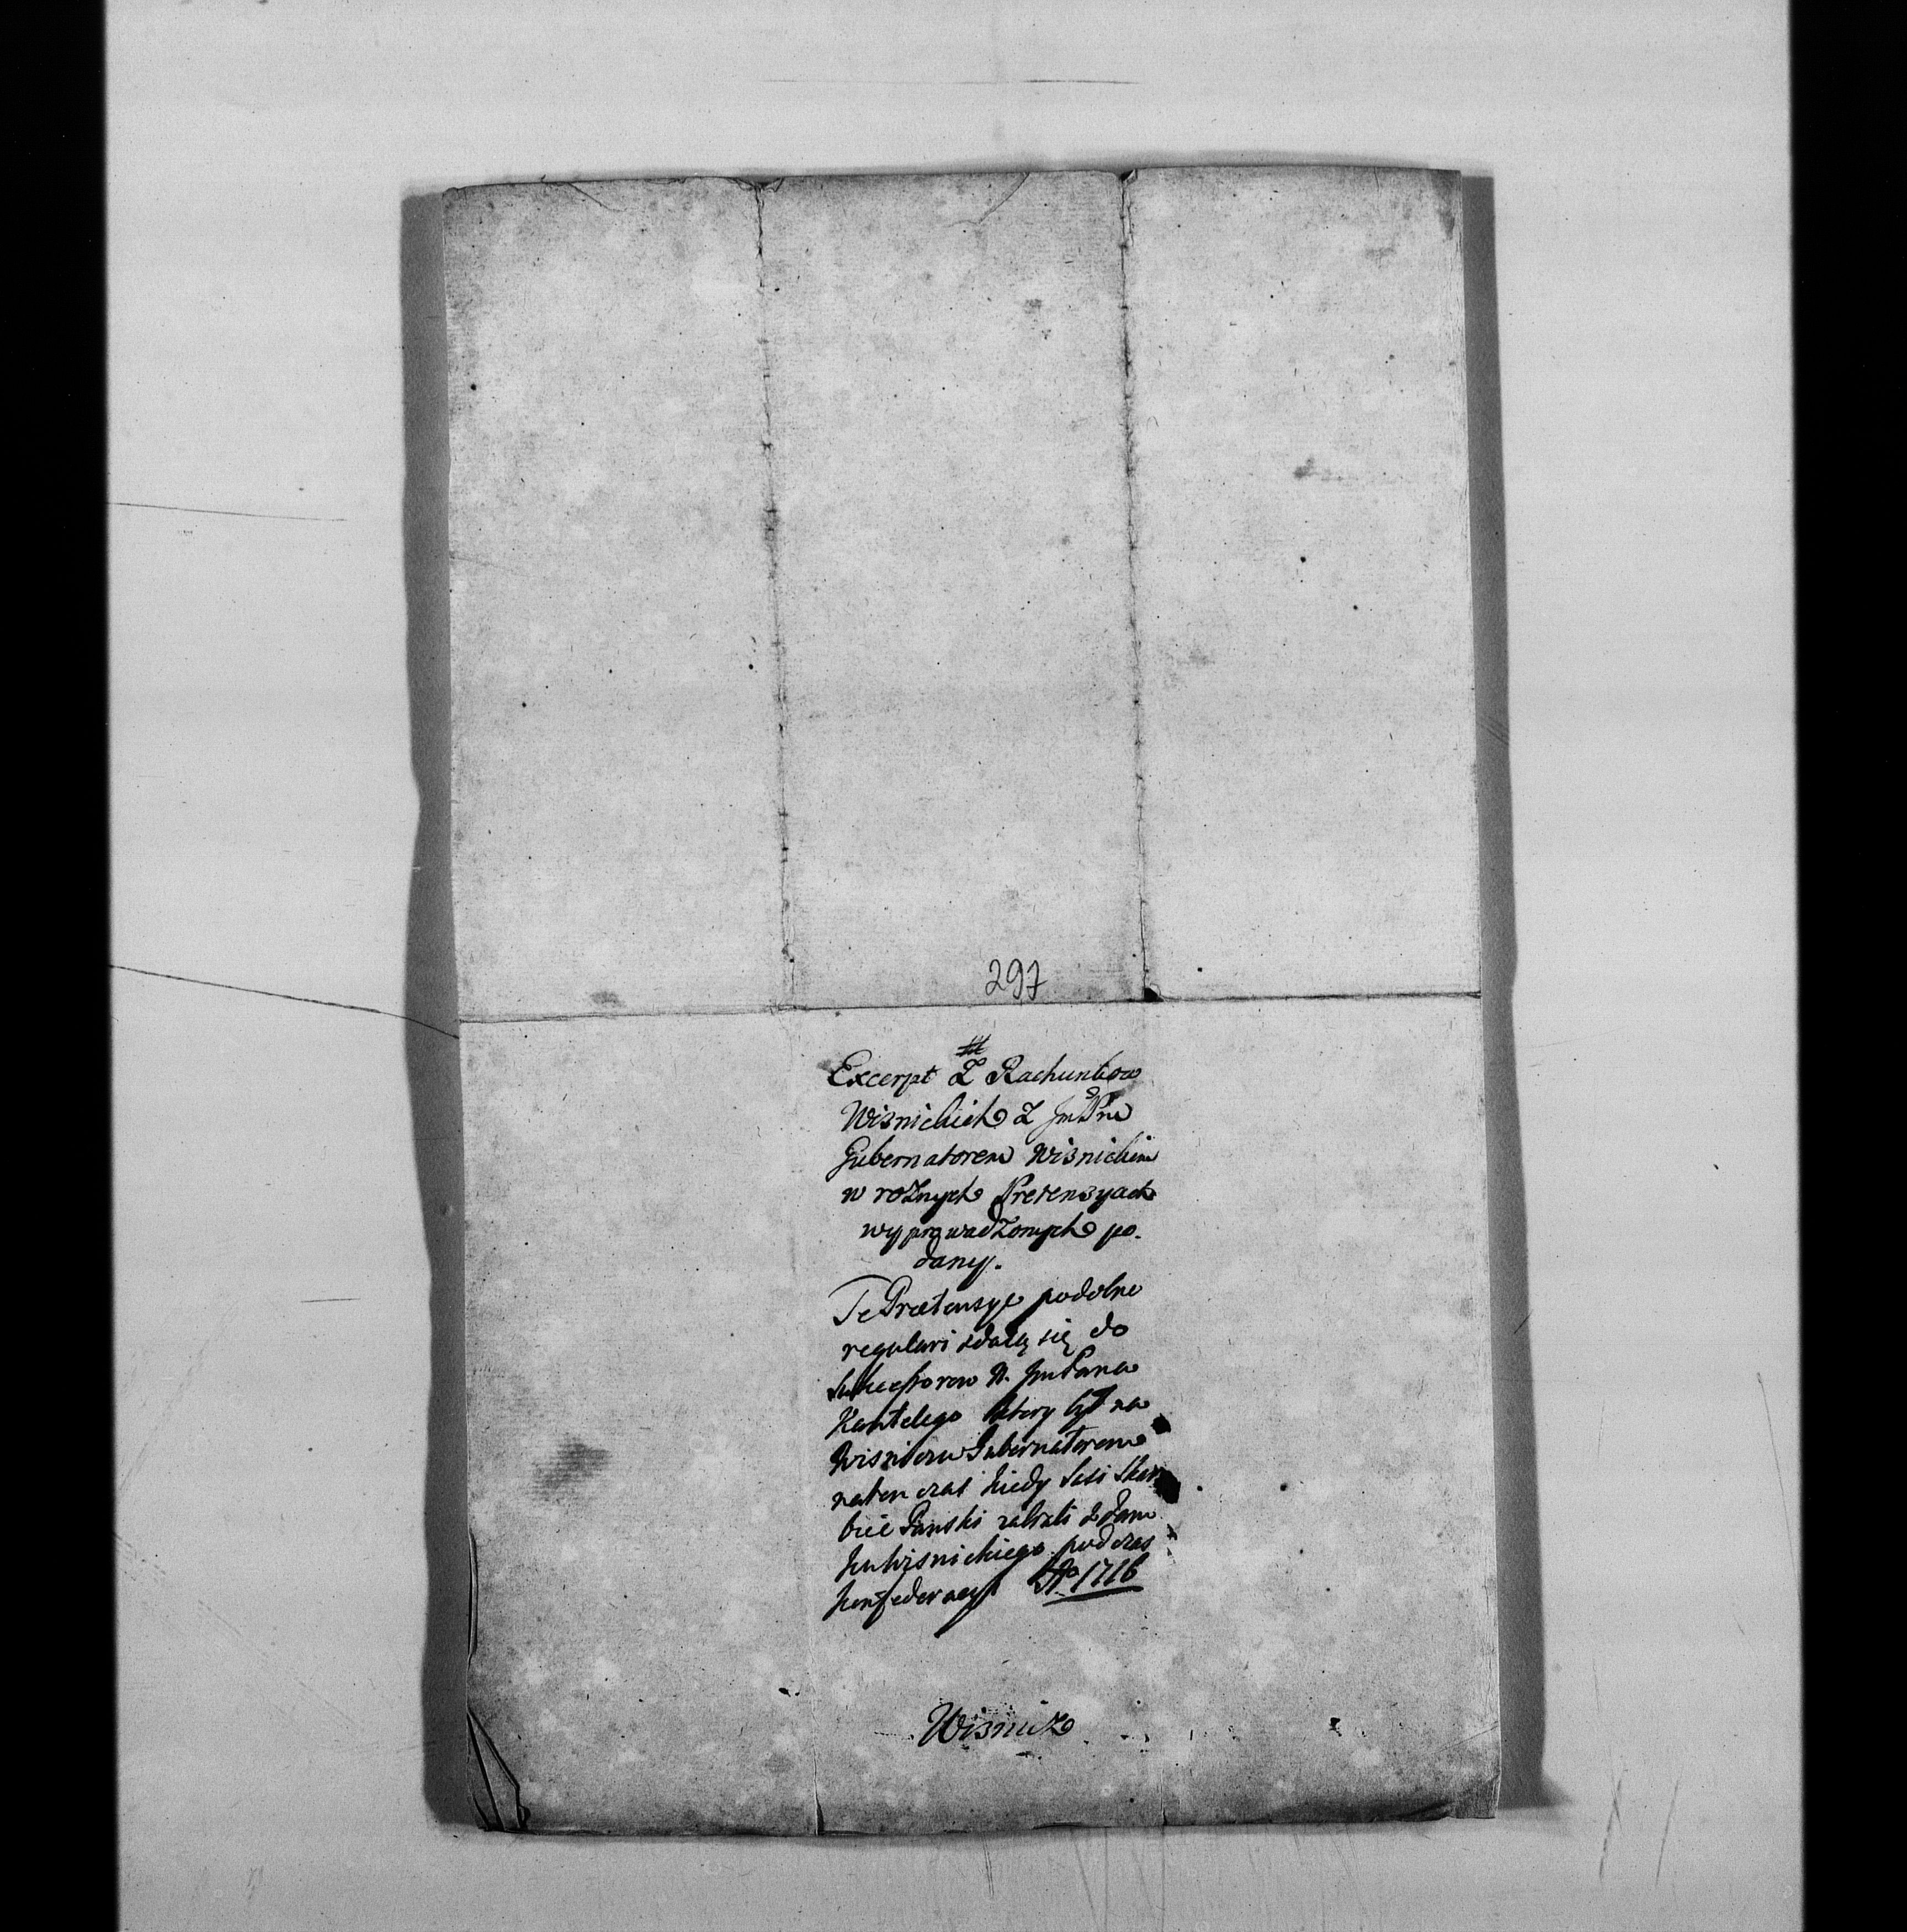 297
Excerpt Z Rachunkow
Wisnickich Z JmPne
Gubernatorem Wisnickim
w roznych Pretensyach
wyprowadzonych po-
dany.
Te Praetensye podobne
regulari zdadzą się do
Sukcessorow N. JmPana
który był na
Wisniczu Gubernatorem
naten czas kiedy Sasi Skar
bce Panski zabrali z Zam
ku Wisnickiego podczas
konfederacyi Ao 1716
Wisnicz